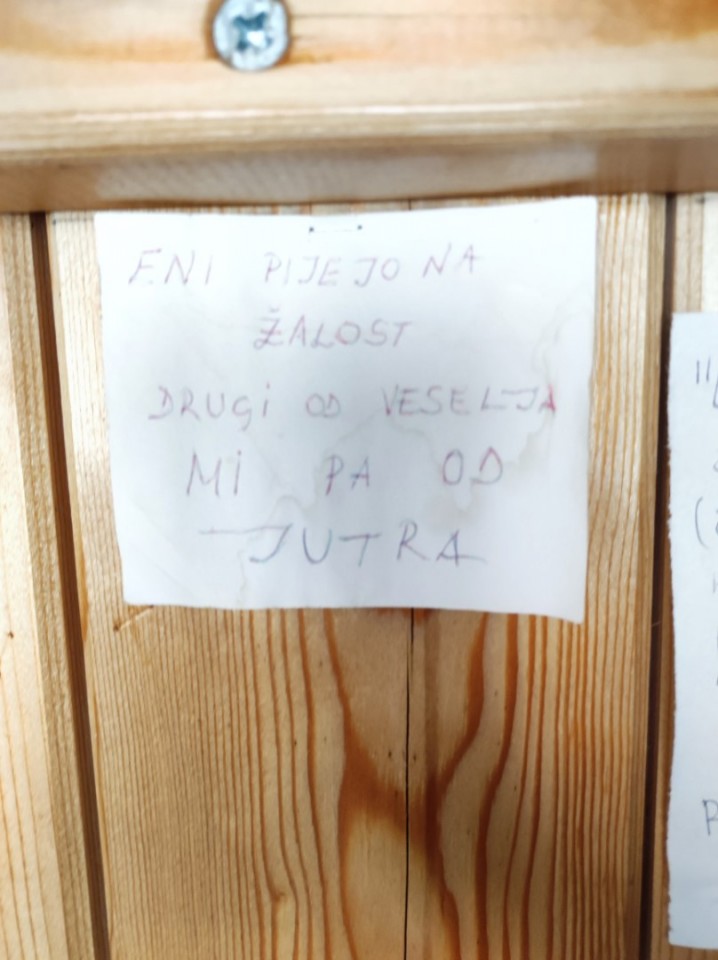 ENI PIJEJO NA
ŽALOST
DRUGI OD VESELJA
MI PA OD
JUTRA